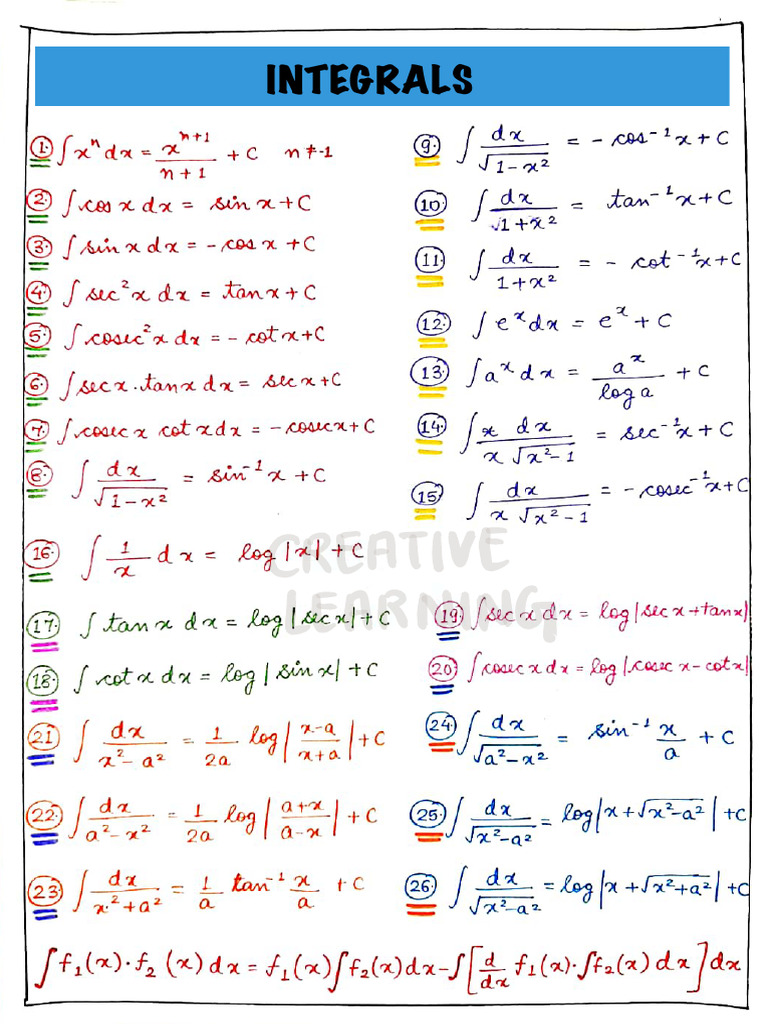 INTEGRALS
1. ∫xⁿ dx = xⁿ⁺¹/(n+1) + C n≠-1
2. ∫cos x dx = sin x + C
3. ∫sin x dx = -cos x + C
4. ∫sec²x dx = tanx + C
5. ∫cosec²x dx = -cotx + C
6. ∫secx.tanx dx = secx + C
7. ∫cosecx cotx dx = -cosecx + C
8. ∫dx/√(1-x²) = sin⁻¹x + C
9. ∫dx/√(1-x²) = -cos⁻¹x + C
10. ∫dx/√1+x² = tan⁻¹x + C
11. ∫dx/(1+x²) = -cot⁻¹x + C
12. ∫eˣdx = eˣ + C
13. ∫aˣ dx = aˣ/log a + C
14. ∫x dx/(x√(x²-1)) = sec⁻¹x + C
15. ∫dx/(x√(x²-1)) = -cosec⁻¹x + C
16. ∫1/x dx = log|x| + C
CREATIVE
LEARNING
17. ∫tanx dx = log|secx| + C
18. ∫cotx dx = log|sinx| + C
19. ∫secx dx = log|secx+tanx|
20. ∫cosecx dx = log|cosecx-cotx|
21 ∫dx/(x²-a²) = 1/2a log|(x-a)/(x+a)| + C
22. ∫dx/(a²-x²) = 1/2a log|(a+x)/(a-x)| + C
23. ∫dx/(x²+a²) = 1/a tan⁻¹ x/a + C
24. ∫dx/√(a²-x²) = sin⁻¹ x/a + C
25. ∫dx/√(x²-a²) = log|x+√(x²-a²)| + C
26. ∫dx/√(x²-a²) = log|x+√(x²+a²)| + C
∫f₁(x)·f₂(x) dx = f₁(x)∫f₂(x)dx - ∫[d/dx f₁(x)·∫f₂(x) dx]dx